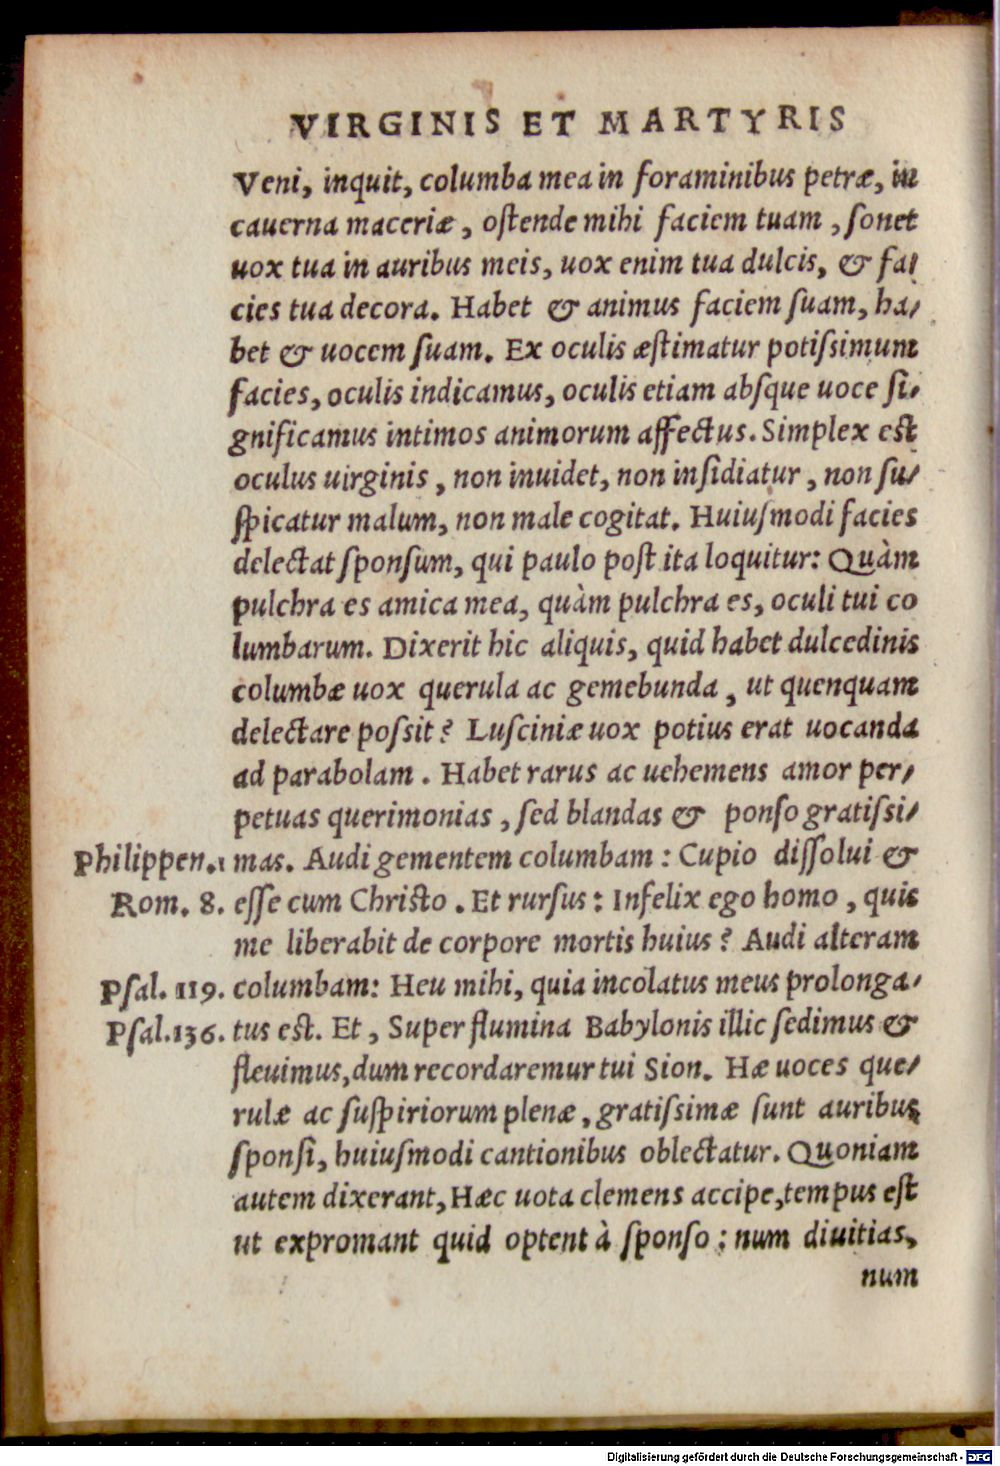 VIRGINIS ET MARTYRIS
Veni, inquit, columba mea in foraminibus petræ, in
cauerna maceriæ, ostende mihi faciem tuam, sonet
uox tua in auribus meis, uox enim tua dulcis, & fa-
cies tua decora. Habet & animus faciem suam, ha-
bet & uocem suam. Ex oculis æstimatur potissimum
facies, oculis indicamus, oculis etiam absque uoce si-
gnificamus intimos animorum affectus. Simplex est
oculus uirginis, non inuidet, non insidiatur, non su-
spicatur malum, non male cogitat. Huiusmodi facies
delectat sponsum, qui paulo post ita loquitur: Quàm
pulchra es amica mea, quàm pulchra es, oculi tui co
lumbarum. Dixerit hic aliquis, quid habet dulcedinis
columbæ uox querula ac gemebunda, ut quenquam
delectare possit? Lusciniæ uox potius erat uocanda
ad parabolam. Habet rarus ac uehemens amor per-
petuas querimonias, sed blandas & ponso gratissi-
Philippen.1 mas. Audi gementem columbam: Cupio dissolui &
Rom. 8. esse cum Christo. Et rursus: Infelix ego homo, quis
me liberabit de corpore mortis huius? Audi alteram
Psal. 119. columbam: Heu mihi, quia incolatus meus prolonga-
Psal.136. tus est. Et, Super flumina Babylonis illic sedimus &
fleuimus, dum recordaremur tui Sion. Hæ uoces que-
rulæ ac suspiriorum plenæ, gratissimæ sunt auribus
sponsi, huiusmodi cantionibus oblectatur. Quoniam
autem dixerant, Hæc uota clemens accipe, tempus est
ut expromant quid optent à sponso: num diuitias,
num
Digitalisierung gefördert durch die Deutsche Forschungsgemeinschaft - DFG